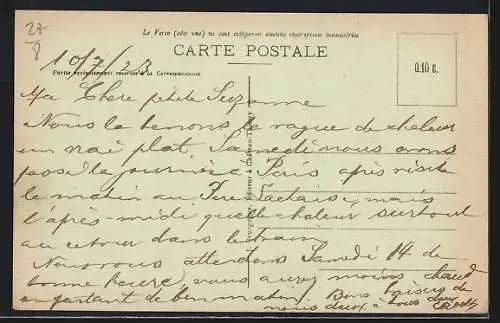 27
Le Verso (côté vue) ne doit comporter aucune inscription manuscrite
CARTE POSTALE
0.10 c.
10/7/23
Partie exclusivement réservée à la Correspondance
Ma Chère petite Suzanne
Nous la tenons la vague de chaleur
un vrai plat. Samedi nous avons
passé la journée à Paris après visite
le matin au Père Lachaise, mais
l'après-midi quelle chaleur surtout
au retour dans le train
Nous vous attendons Samedi 14 de
bonne heure, vous aurez moins chaud
en partant de bon matin. Bons baisers de
nous deux à vous deux
Éditeur à Château-Thierry